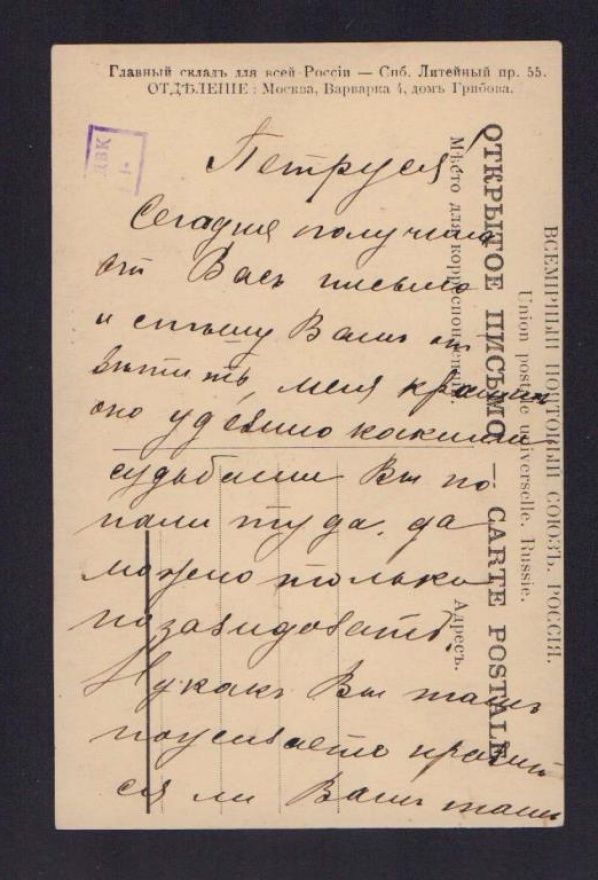 Главный складъ для всей Россіи — Спб. Литейный пр. 55.
ОТДѢЛЕНІЕ: Москва, Варварка 4, домъ Грибова.
ДВК
Петруся!
Сегодня получила
от Васъ письмо
и спѣшу Вамъ от
вѣтить, меня крайн
оно удевило какими
судьбами Вы по
пали туда, да
можно только
позавидовать.
Ну какъ Вы тамъ
поживаете нравит
ся ли Вамъ тамъ
ОТКРЫТОЕ ПИСЬМО — CARTE POSTALE
Мѣсто для корреспонденціи.
Адресъ.
ВСЕМІРНЫЙ ПОЧТОВЫЙ СОЮЗЪ. РОССІЯ.
Union postale universelle. Russie.